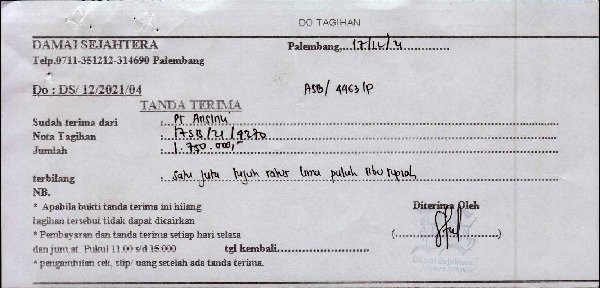 DO TAGIHAN
DAMAI SEJAHTERA Palembang, 17/12/21
Telp.0711-351212-314690 Palembang
Do : DS/ 12/2021/04 ASB/ 4463/P
TANDA TERIMA
Sudah terima dari : PT
Nota Tagihan : /21/4270
Jumlah : 1.750.000,-
terbilang : satu juta tujuh ratus lima puluh ribu rupiah
NB.
* Apabila bukti tanda terima ini hilang Diterima Oleh
tagihan tersebut tidak dapat dicairkan
* Pembayaran dan tanda terima setiap hari selasa (....................)
dan jum,at. Pukul 11.00 s/d 15.000 tgl kembali......................
Damai Sejahtera
* pengambilan cek, slip/ uang setelah ada tanda terima.